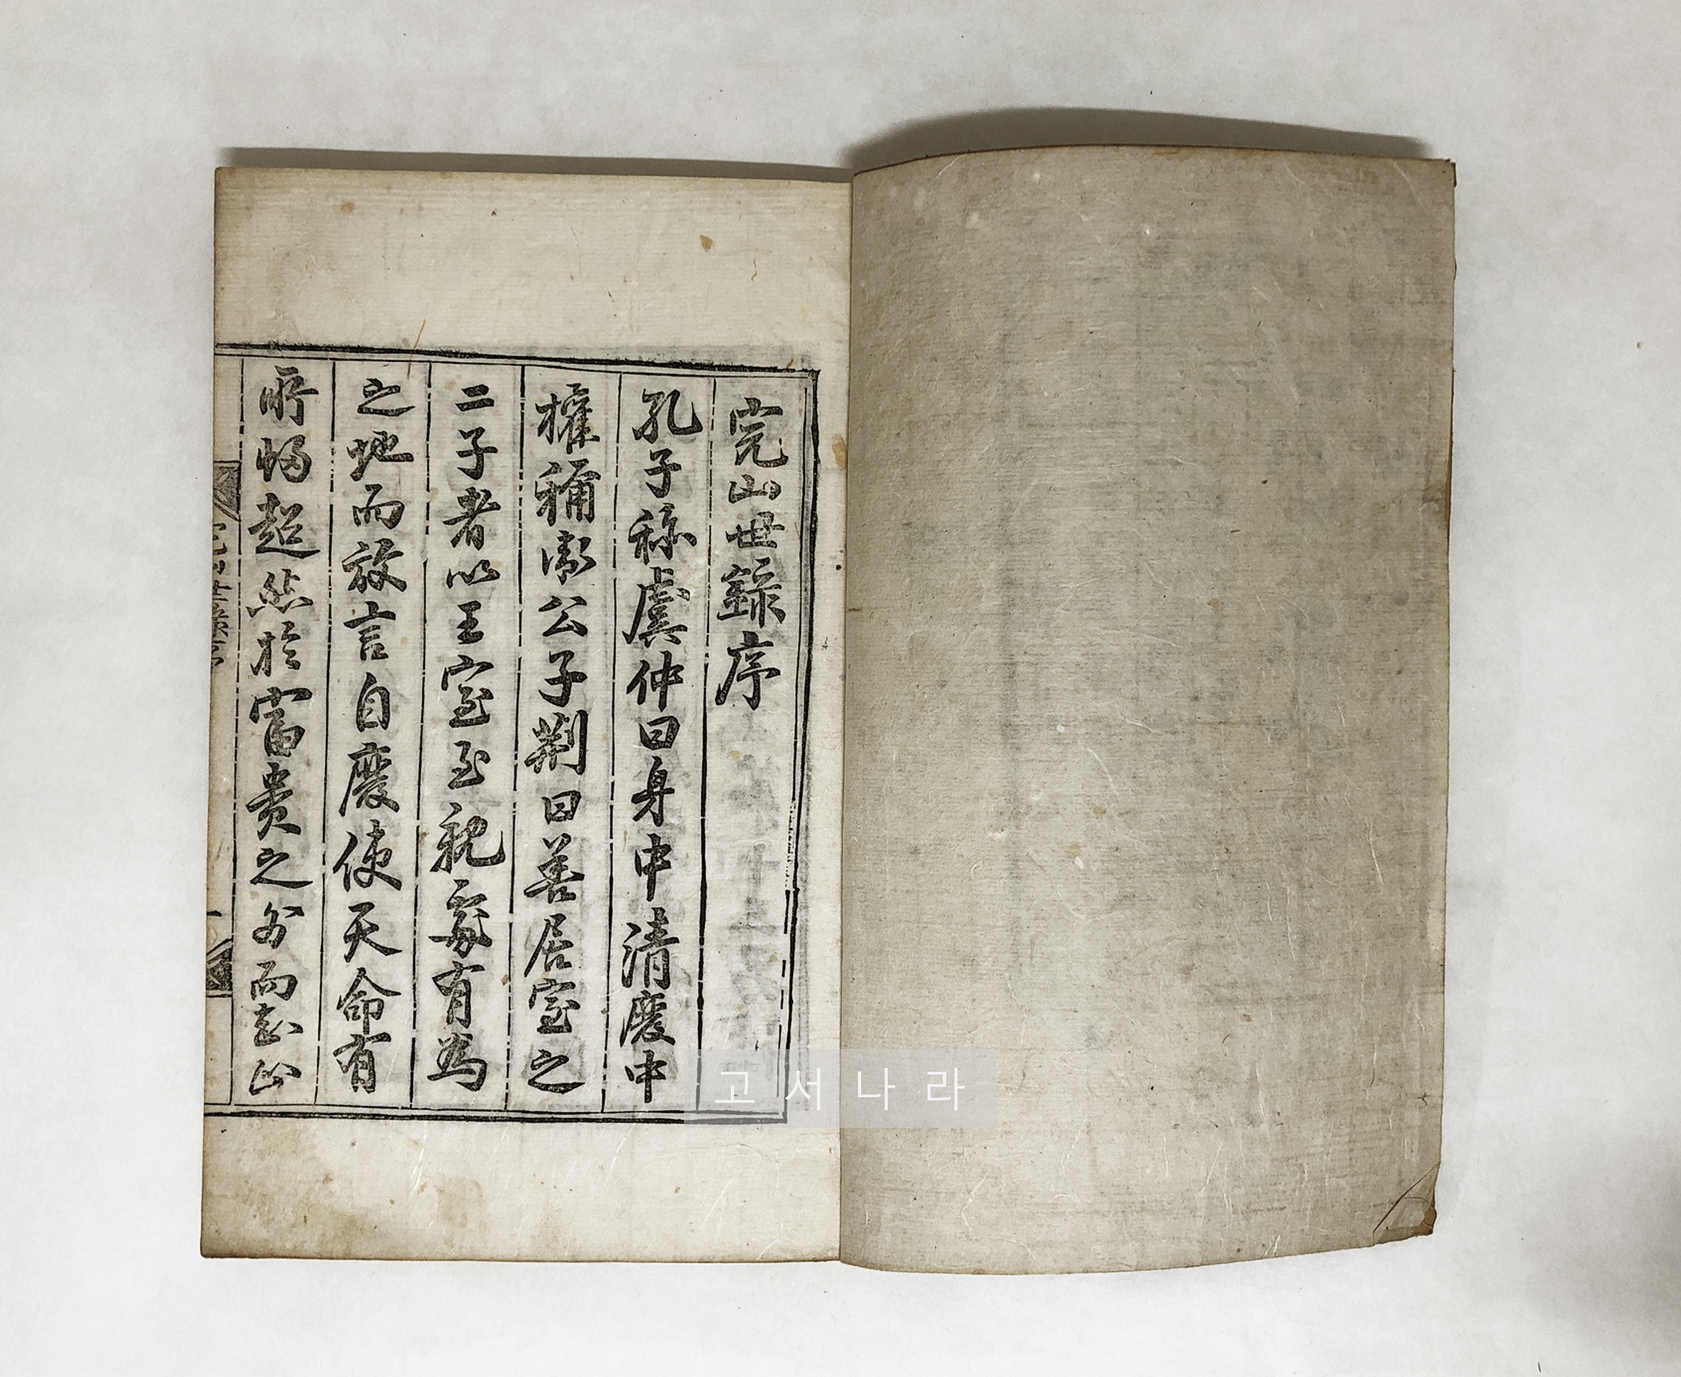 完山世錄序
孔子称虞仲曰身中清廢中
權稱衛公子荊曰善居室之
二子者以王室至親處有為
之地而放言自廢使天命有
所歸超然於富貴之外而志山
完山世錄序
고서나라